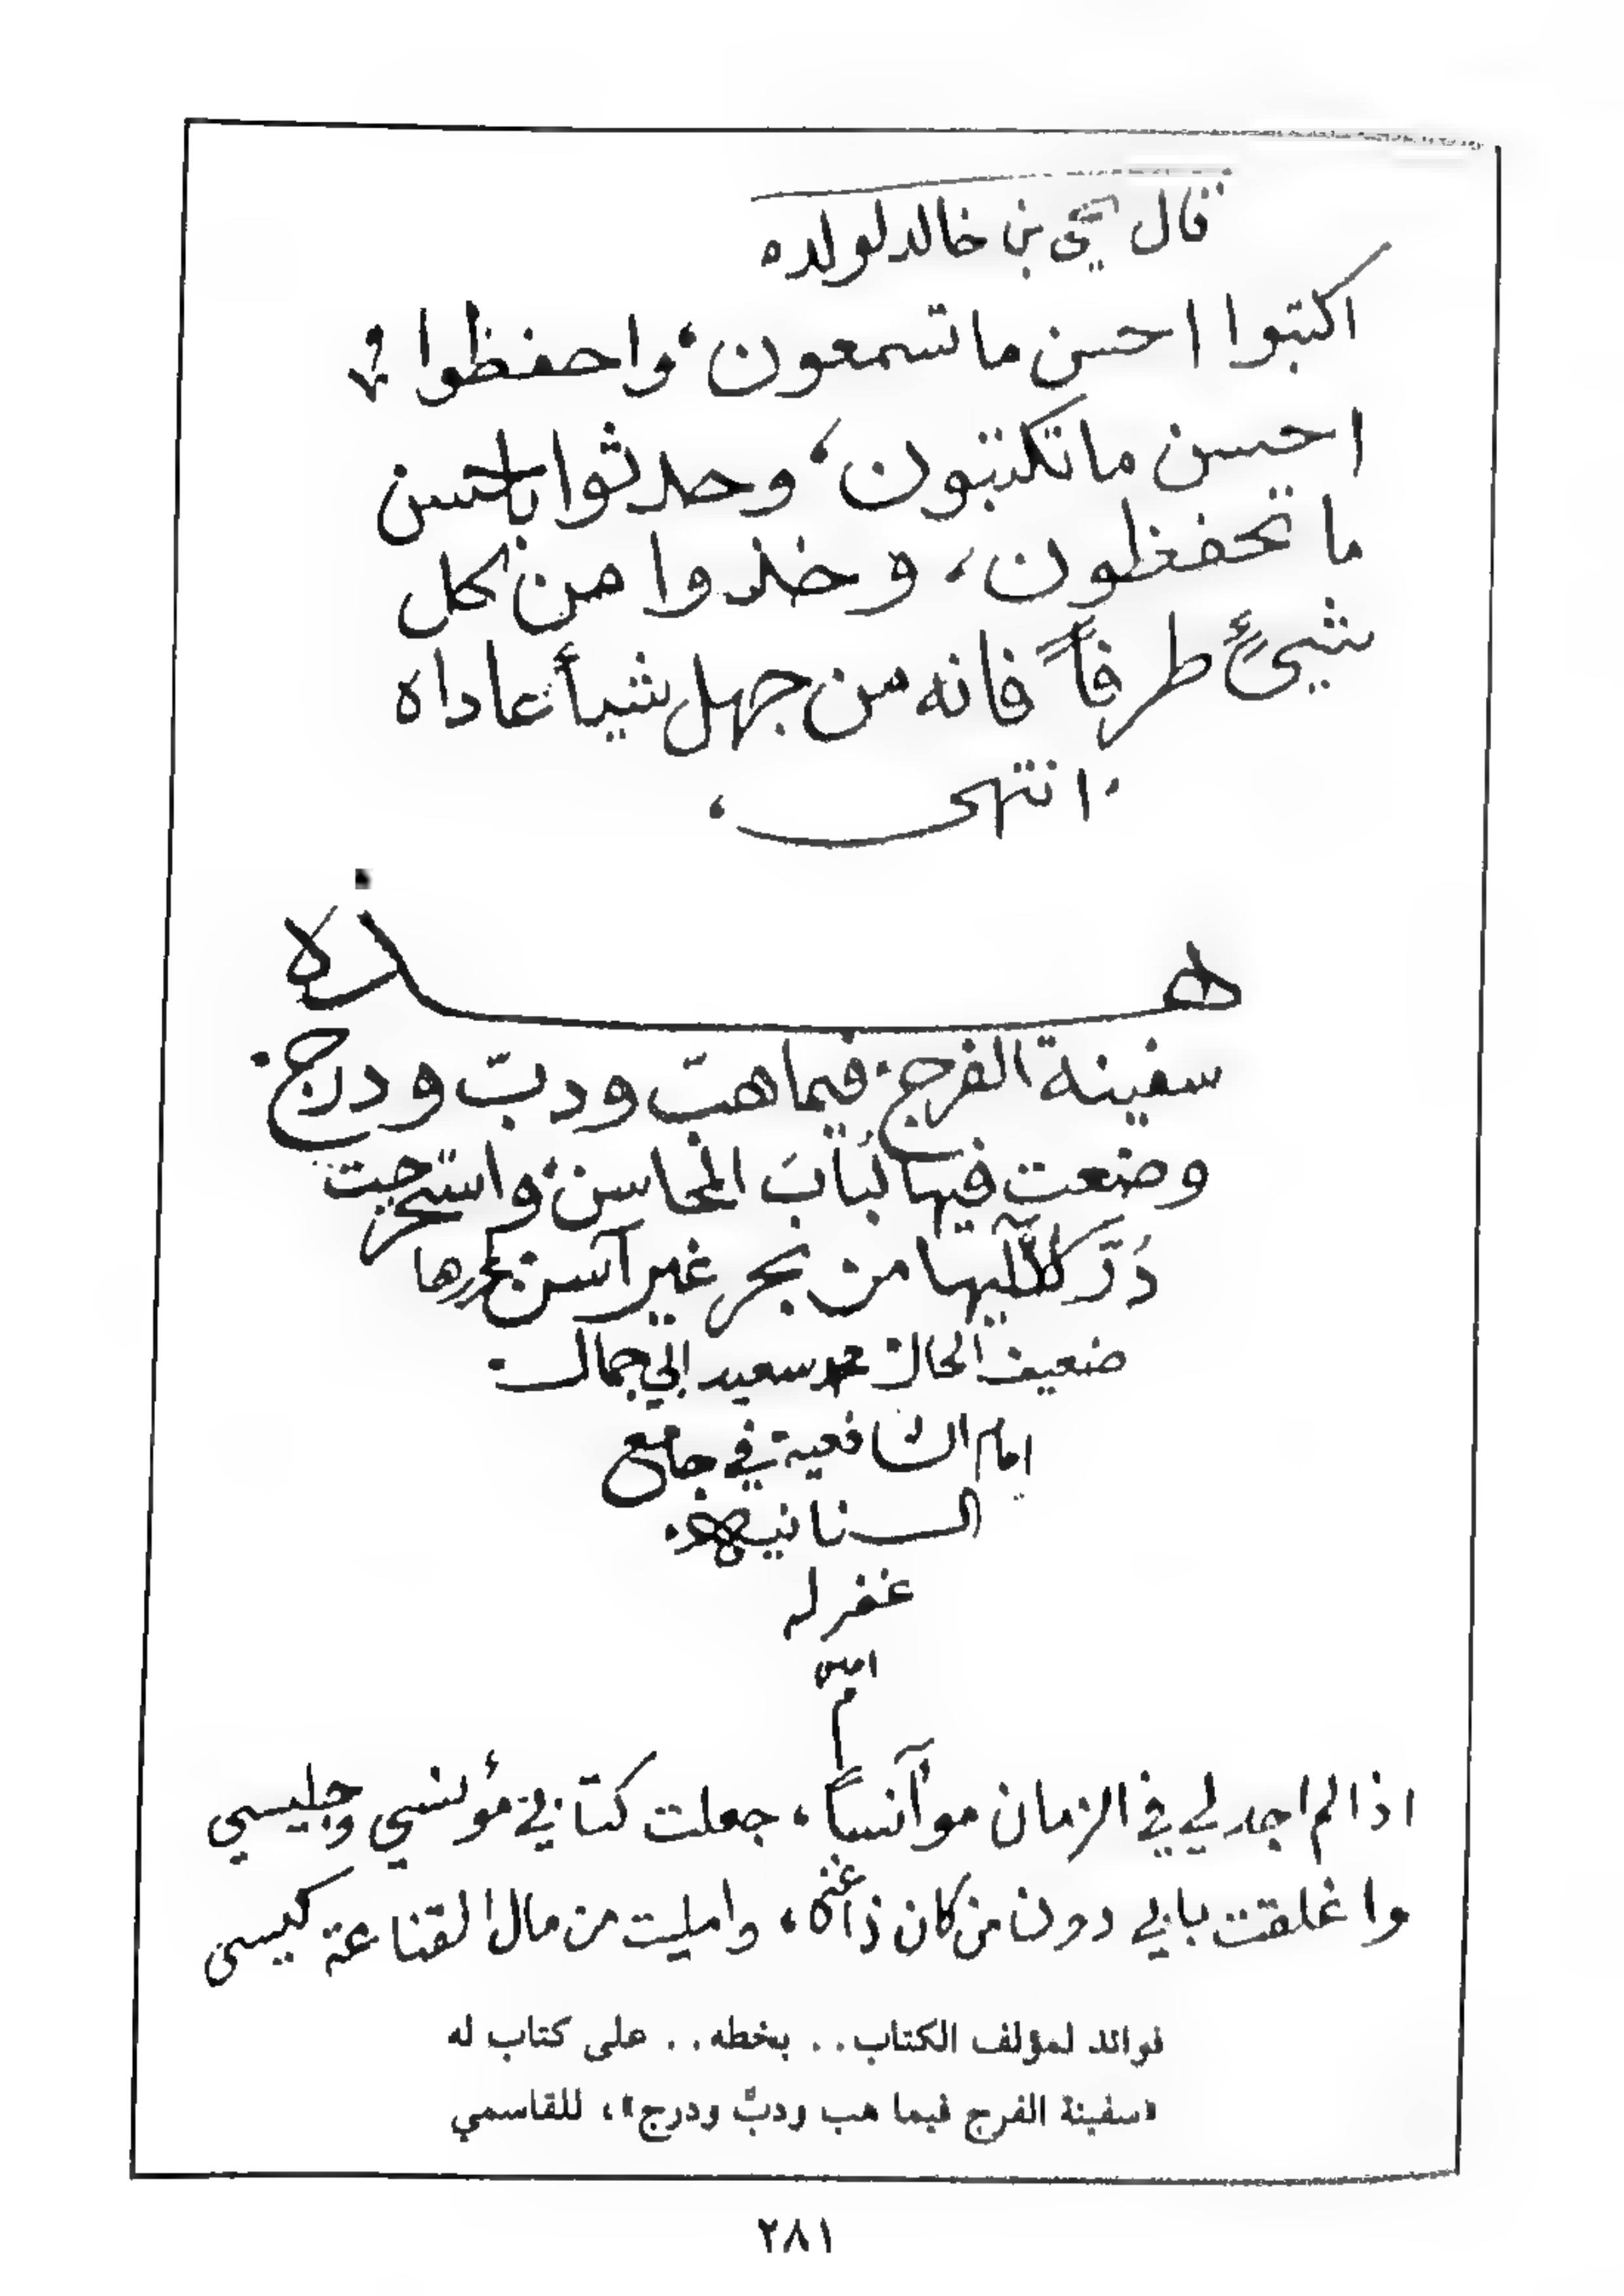 قال يحيى بن خالد لولده
اكتبوا احسن ما تسمعون، واحفظوا
احسن ما تكتبون، وحدثوا باحسن
ما تحفظون، وخذوا من كل
شيىءٍ طرفاً فانه من جهل شيأ عاداه
انتهى
هـــذه
سفينة الفرج. فيما هبّ ودبّ ودرج.
وضعت فيها لُبابَ المحاسن، واستخرجت
دُرَّ لآليها من بحر غير آسن محررها
ضعيف الحال محمد سعيد ابي جمال
امام الشافعية في جامع
السنانيه
غفر له
امين
م
اذا لم اجد لي في الزمان موآنساً، جعلت كتابي مؤنسي وجليسي
واغلقت بابي دون من كان ذا غنى، وامليت من مال القناعة كيسي
فوائد لمؤلف الكتاب.. بخطه.. على كتاب له
«سفينة الفرج فيما هب ودبّ ودرج»، للقاسمي
٢٨١